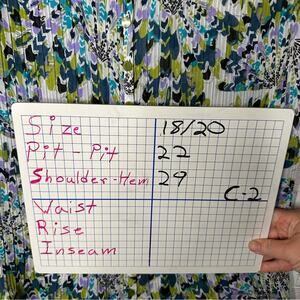 Size 18/20
Pit - Pit 22
Shoulder-Hem 29
C-2
Waist
Rise
Inseam